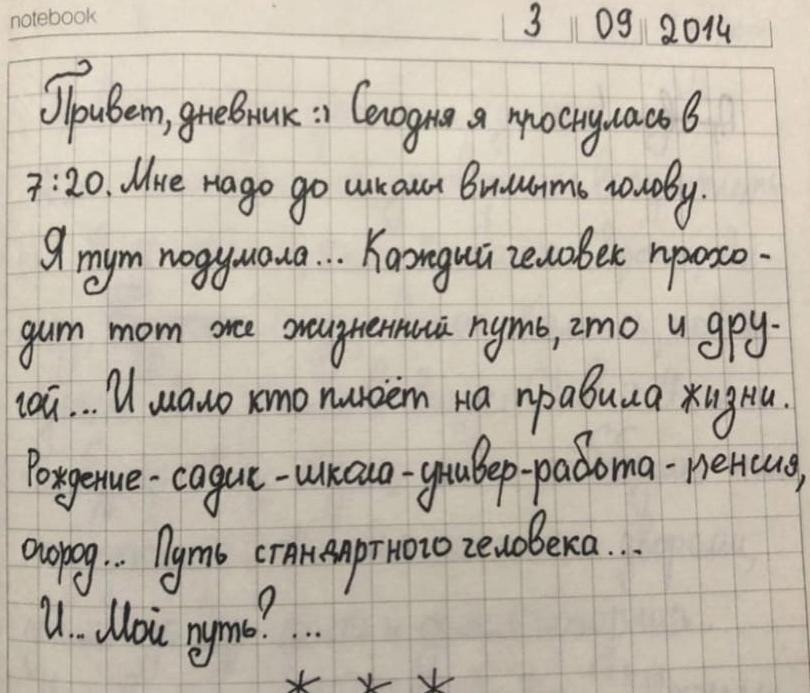 notebook
3 09 2014
Привет, дневник :) Сегодня я проснулась в
7:20. Мне надо до школы вымыть голову.
Я тут подумала... Каждый человек прохо-
дит тот же жизненный путь, что и дру-
гой... И мало кто плюёт на правила жизни.
Рождение - садик - школа - универ - работа - пенсия,
огород... Путь стандартного человека...
И... Мой путь? ...
* * *